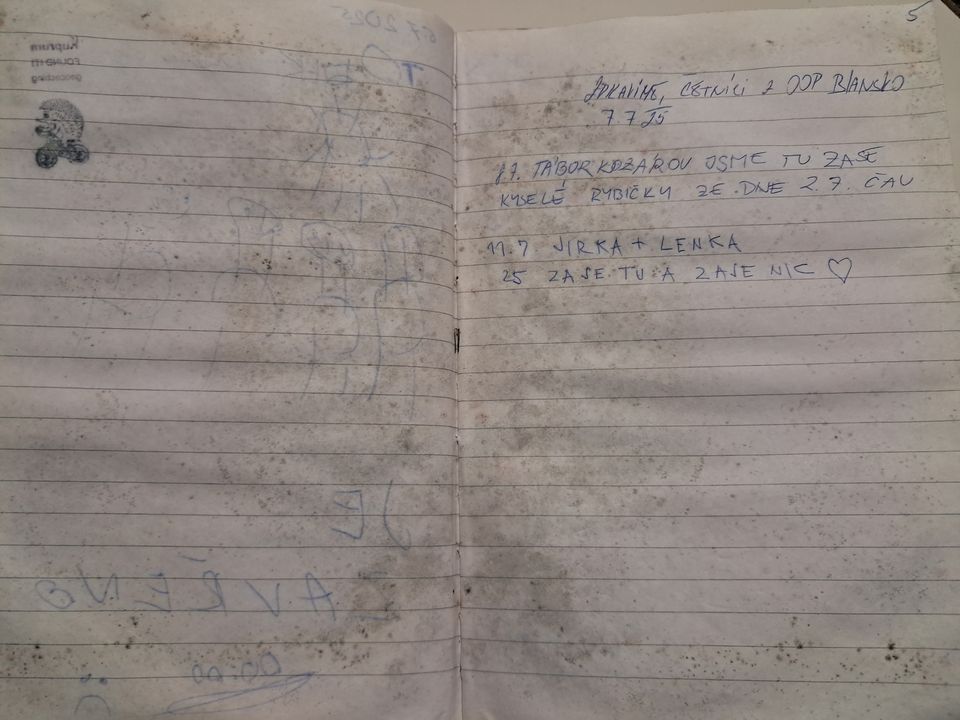 5
ZDRAVÍME, ČETNÍCI Z OOP BLANSKO
7.7.25
8.7. TÁBOR KOZÁROV JSME TU ZASE
KYSELÉ RYBIČKY ZE DNE 2.7. ČAU
11.7. JIRKA + LENKA
25 ZASE TU A ZASE NIC ♡
Kuprum
FOUND IT!
geocaching
JE
ZAVŘENO